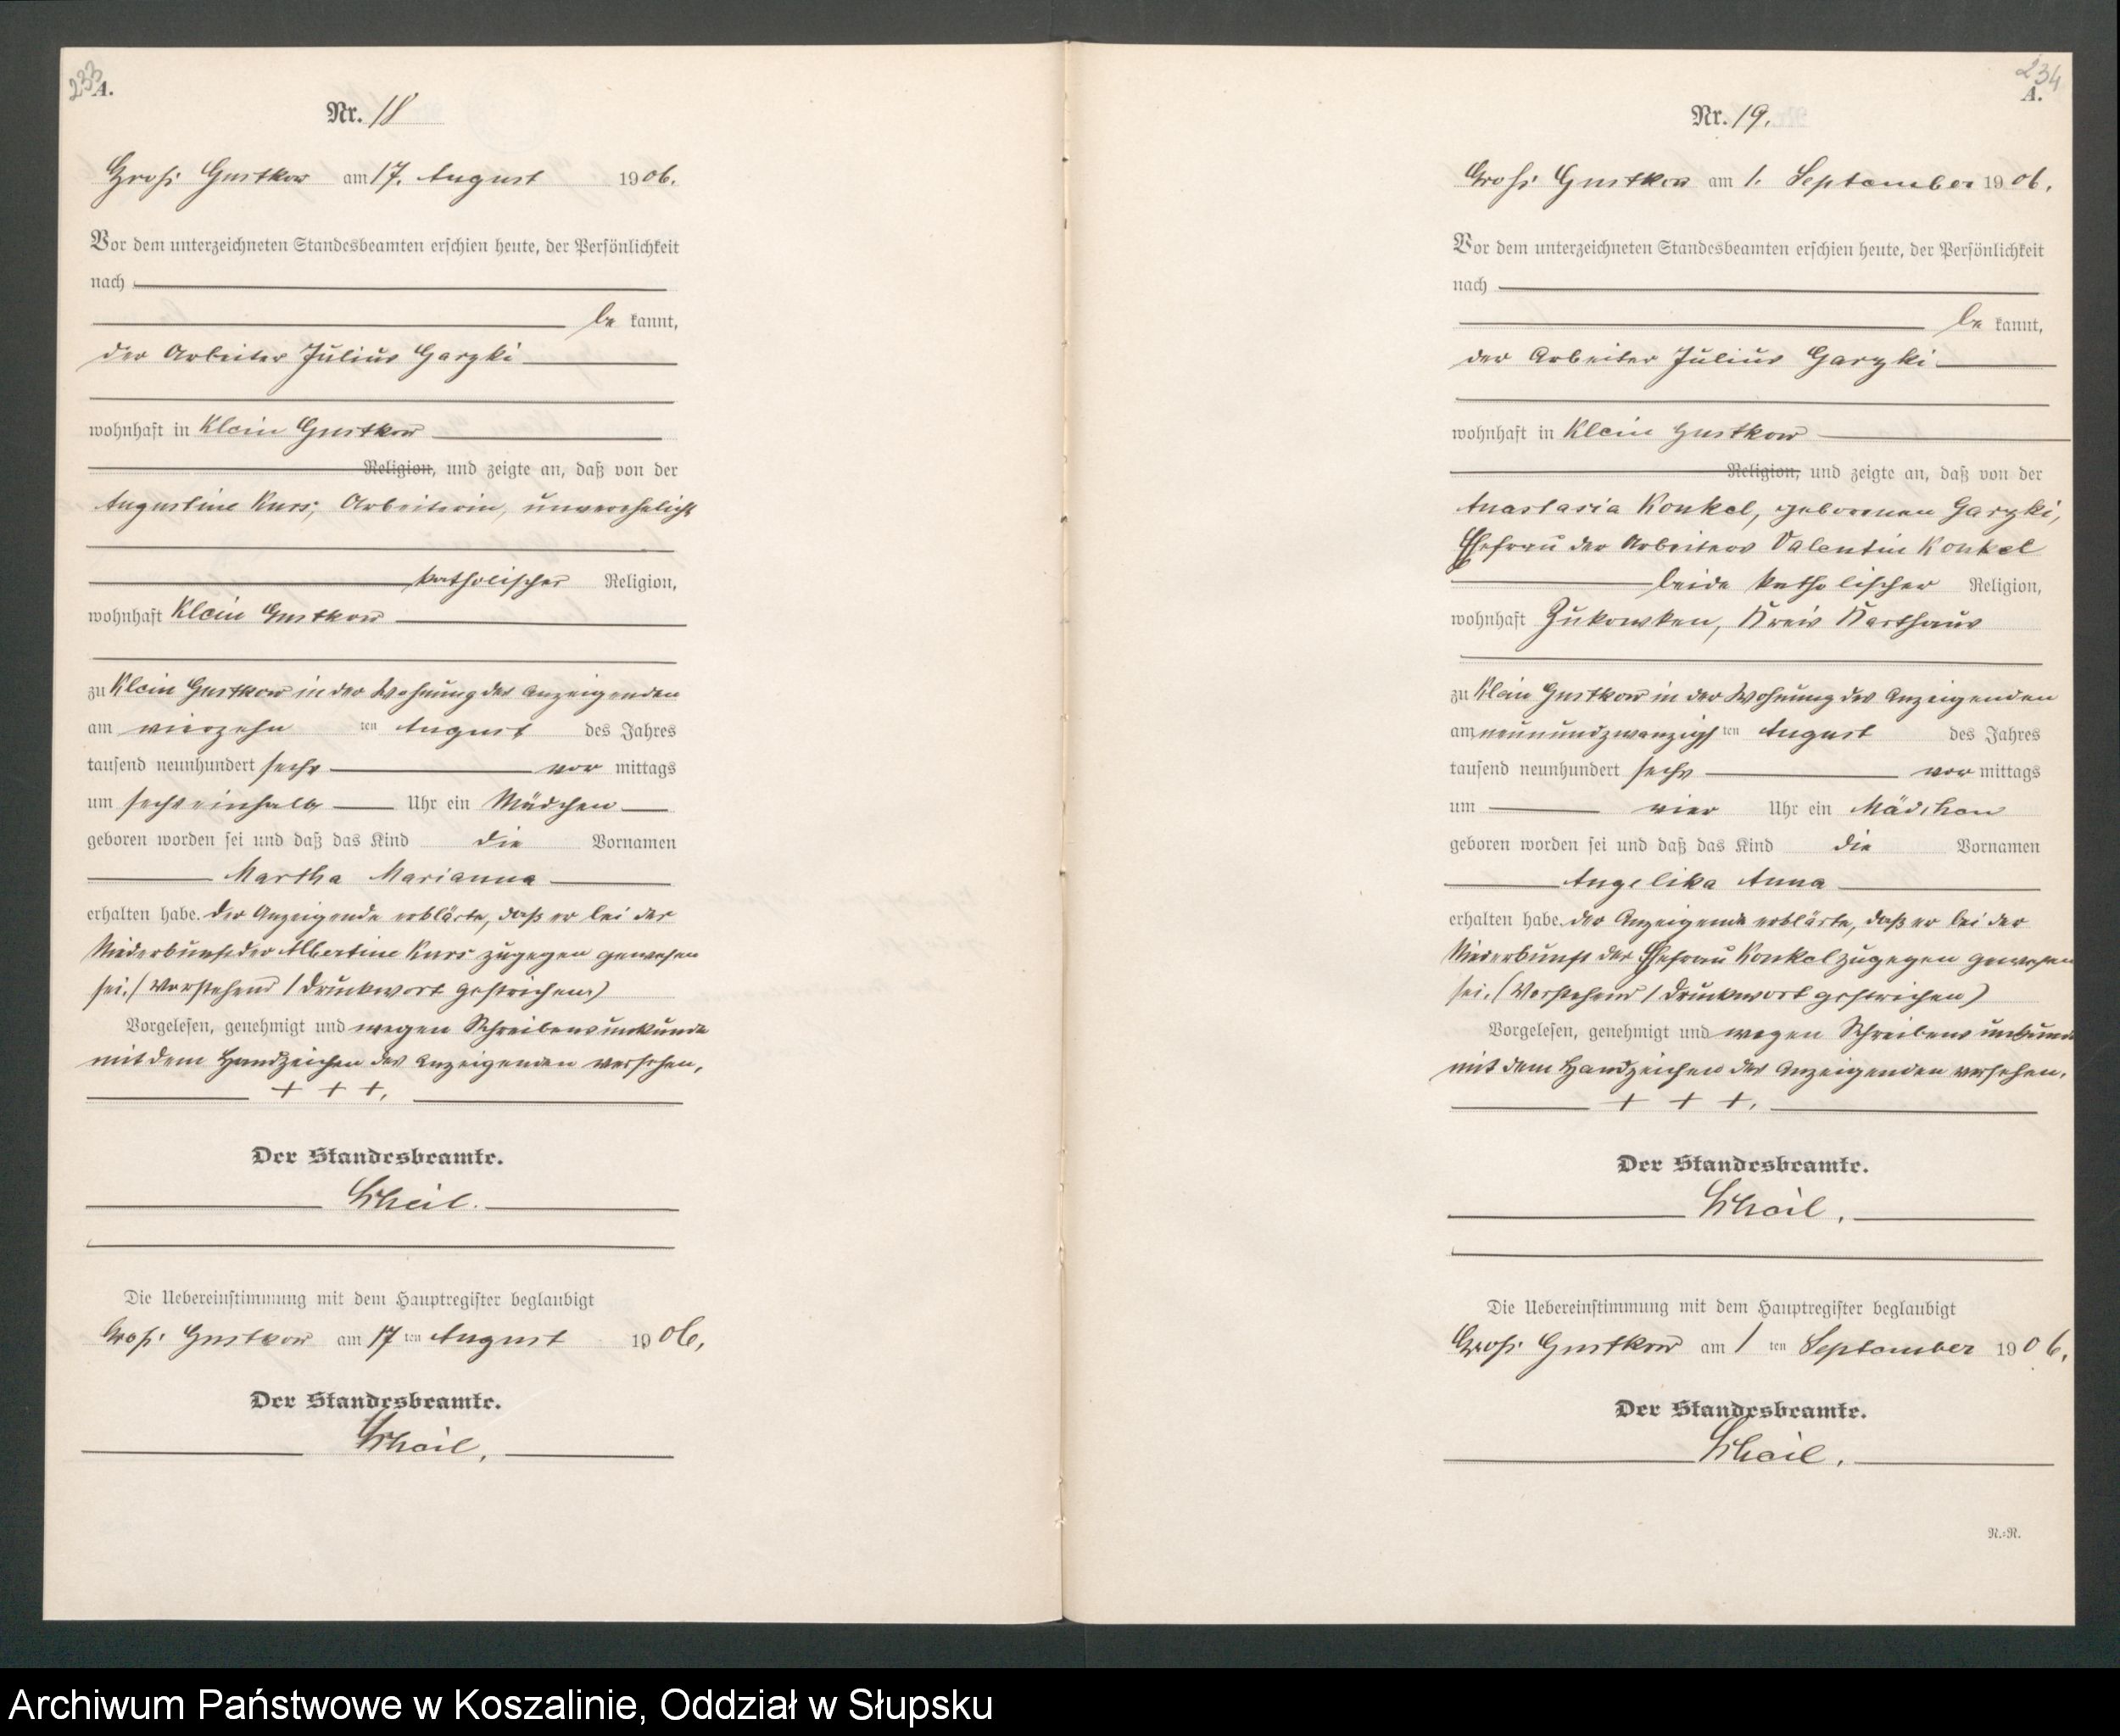 233
A.
Nr. 18
Groß Gustkow am 17. August 1906.
Vor dem unterzeichneten Standesbeamten erschien heute, der Persönlichkeit
nach
be kannt,
der Arbeiter Julius Garzki
wohnhaft in Klein Gustkow
Religion, und zeigte an, daß von der
Augustine Kurs, Arbeiterin, unverehelicht
katholischer Religion,
wohnhaft Klein Gustkow
zu Klein Gustkow in der Wohnung des Anzeigenden
am vierzehn ten August des Jahres
tausend neunhundert sechs vor mittags
um sechseinhalb Uhr ein Mädchen
geboren worden sei und daß das Kind die Vornamen
Martha Marianna
erhalten habe. Der Anzeigende erklärte, daß er bei der
Niederkunft der Albertine Kurs zugegen gewesen
sei. (Vorstehend 1 Druckwort gestrichen)
Vorgelesen, genehmigt und wegen Schreibensunkunde
mit dem Handzeichen des Anzeigenden versehen,
+ + +.
Der Standesbeamte.
Scheil.
Die Uebereinstimmung mit dem Hauptregister beglaubigt
Groß Gustkow am 17 ten August 1906,
Der Standesbeamte.
Scheil.
234
A.
Nr. 19.
Groß Gustkow am 1. September 1906.
Vor dem unterzeichneten Standesbeamten erschien heute, der Persönlichkeit
nach
be kannt,
der Arbeiter Julius Garzki
wohnhaft in Klein Gustkow
Religion, und zeigte an, daß von der
Anastasia Konkel, geborenen Garzki,
Ehefrau des Arbeiters Valentin Konkel
beide katholischer Religion,
wohnhaft Zukowken, Kreis Karthaus
zu Klein Gustkow in der Wohnung des Anzeigenden
am neunundzwanzigs ten August des Jahres
tausend neunhundert sechs vor mittags
um vier Uhr ein Mädchen
geboren worden sei und daß das Kind die Vornamen
Angelika Anna
erhalten habe. Der Anzeigende erklärte, daß er bei der
Niederkunft der Ehefrau Konkel zugegen gewesen
sei. (Vorstehend 1 Druckwort gestrichen)
Vorgelesen, genehmigt und wegen Schreibensunkunde
mit dem Handzeichen des Anzeigenden versehen.
+ + +.
Der Standesbeamte.
Scheil.
Die Uebereinstimmung mit dem Hauptregister beglaubigt
Groß Gustkow am 1 ten September 1906.
Der Standesbeamte.
Scheil.
N.=N.
Archiwum Państwowe w Koszalinie, Oddział w Słupsku